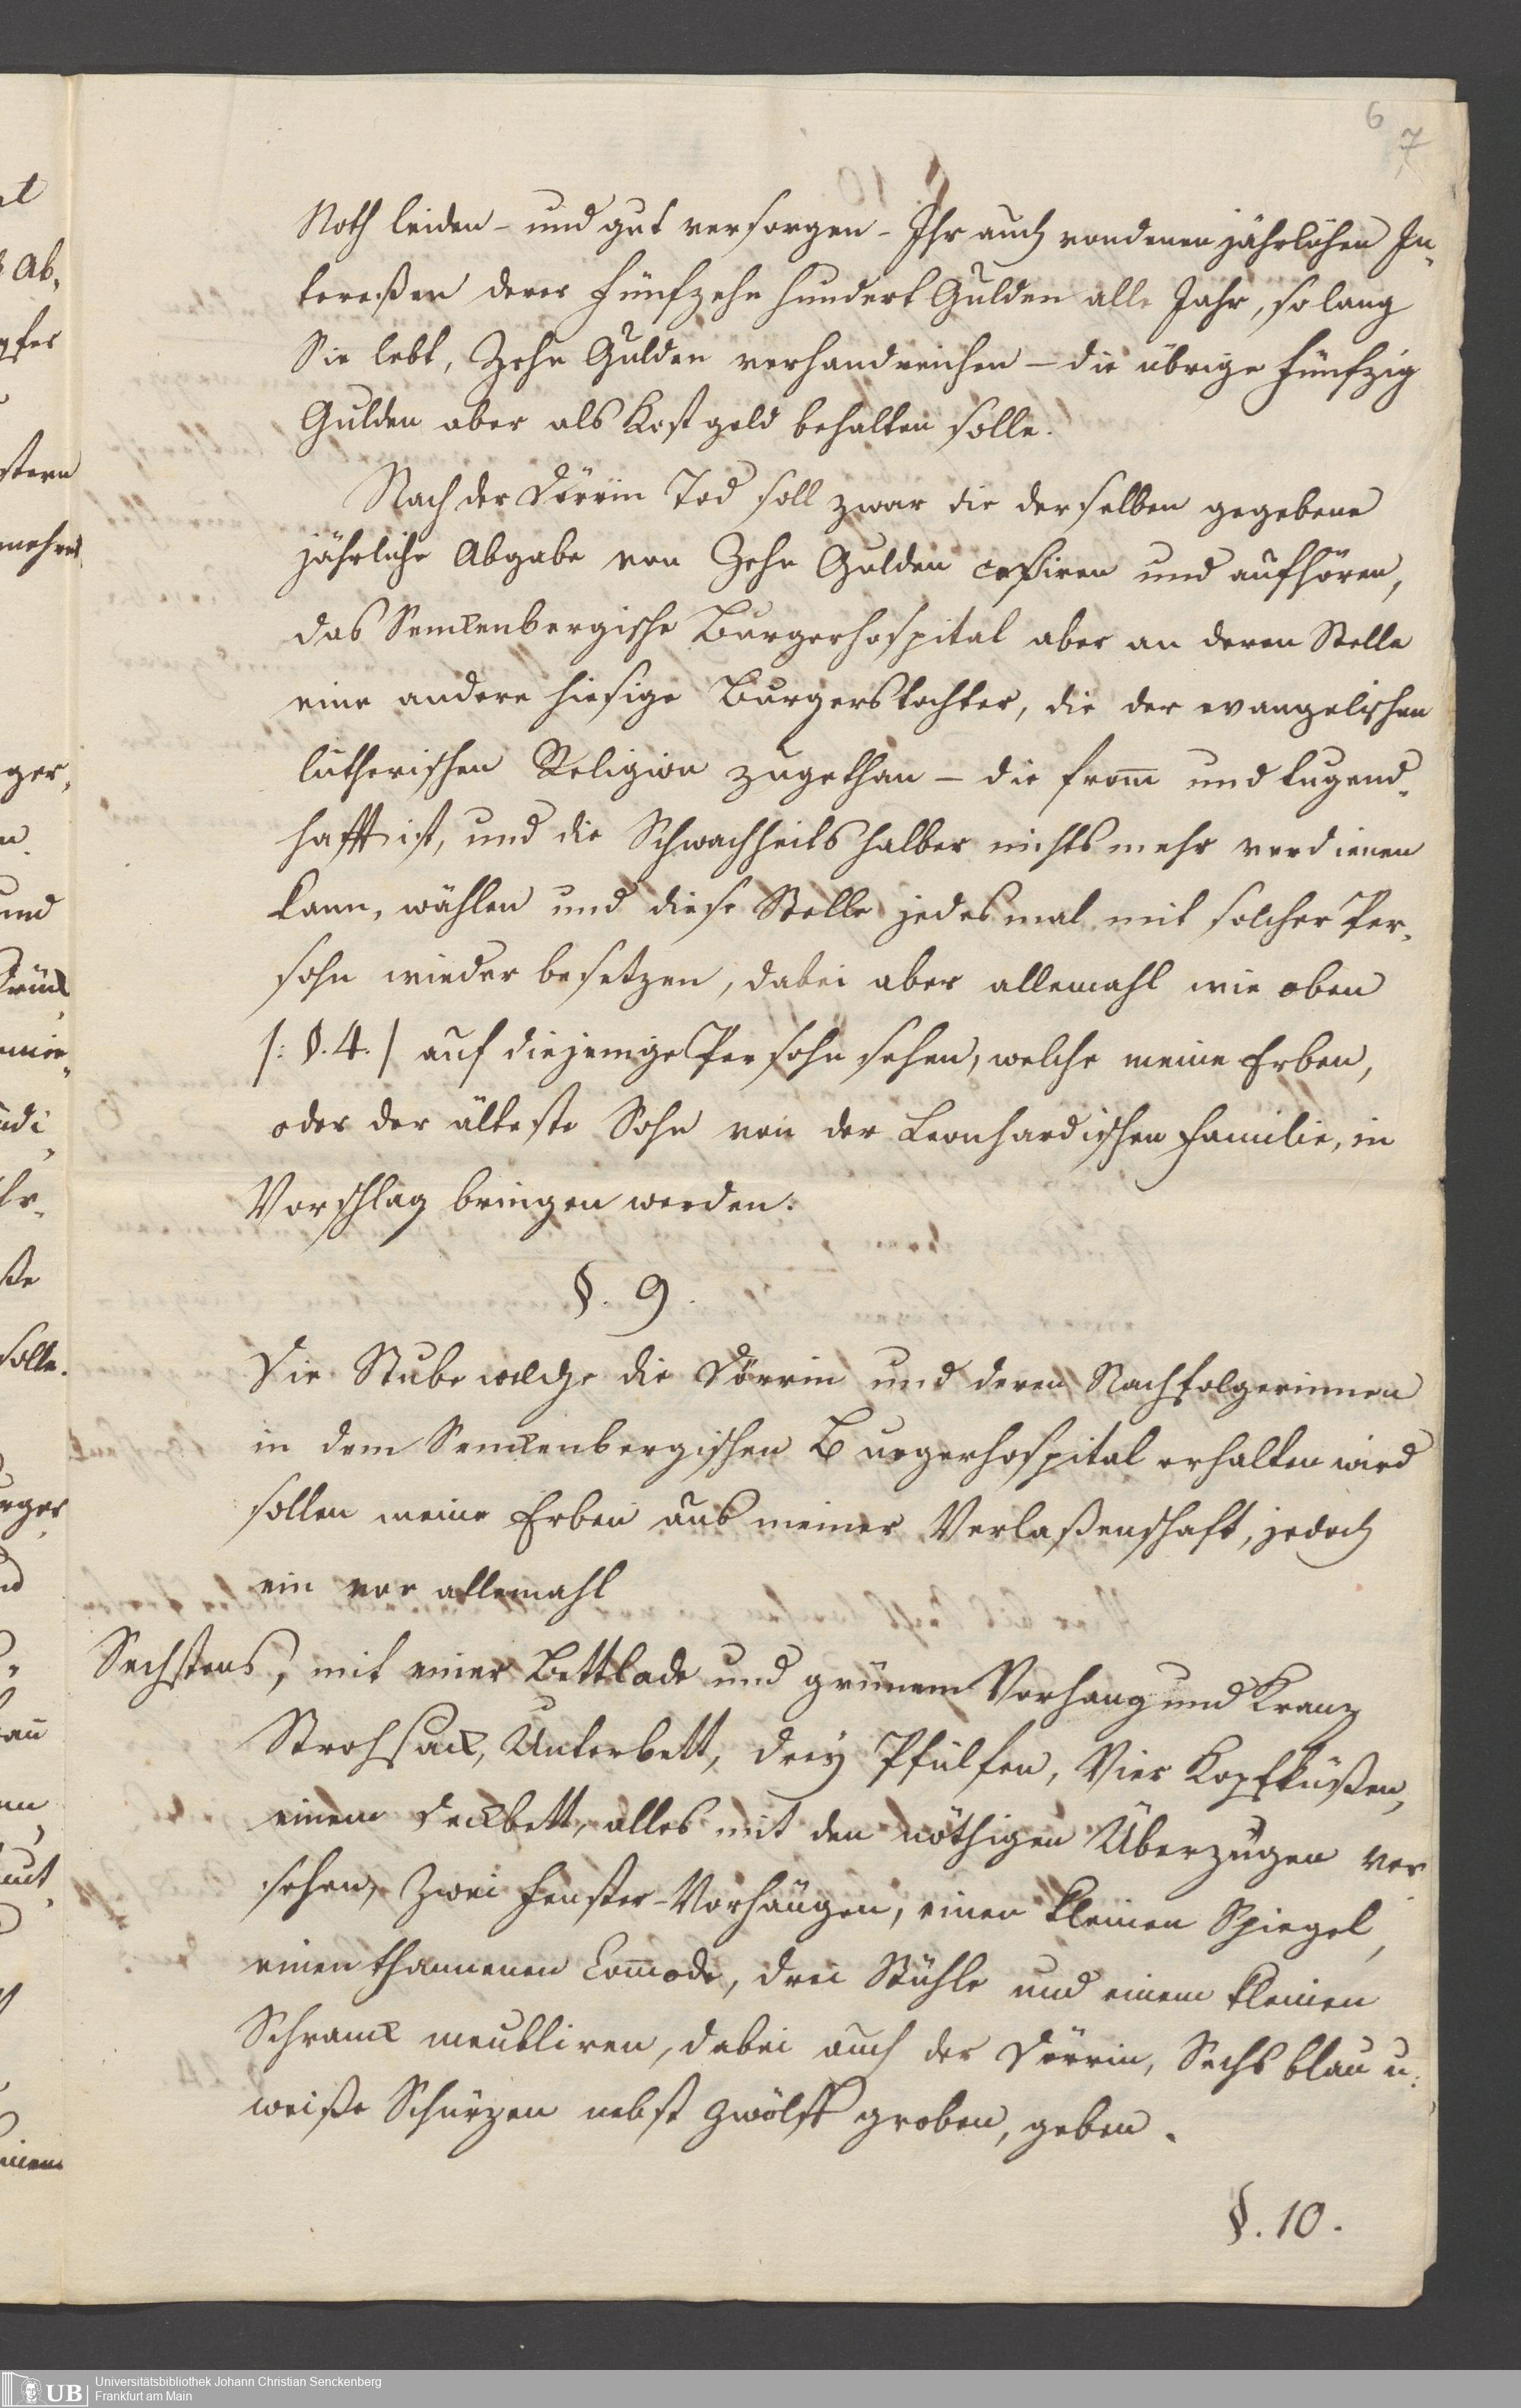 6
7
Noth leiden - und gut versorgen - Ihr auch von denen jährlichen In-
tereßen derer Fünfzehn hundert Gulden alle Jahr, so lang
Sie lebt, Zehn Gulden verhandreichen - die übrige Fünfzig
Gulden aber als Kostgeld behalten solle.
Nach der Dörrin Tod soll zwar die derselben gegebene
jährliche Abgabe von Zehn Gulden ceßiren und aufhören,
das Senckenbergische Burgerhospital aber an deren Stelle
eine andere hiesige Burgerstochter, die der evangelischen
lutherischen Religion zugethan - die from̅ und tugend-
hafft ist, und die Schwachheits halber nichts mehr verdienen
kann, wählen und diese Stelle jedesmal mit solcher Per-
sohn wieder besetzen, dabei aber allemahl wie oben
/: §. 4. / auf diejenige Persohn sehen, welche meine Erben,
oder der älteste Sohn von der Leonhardischen Familie, in
Vorschlag bringen werden.
§. 9.
Die Stube welche die Dörrin und deren Nachfolgerinnen
in dem Senckenbergischen Burgerhospital erhalten wird
sollen meine Erben aus meiner Verlaßenschaft, jedoch
ein vor allemahl
Sechstens, mit einer Bettlade und grünem Vorhang und Kranz
Strohsack, Unterbett, drey Pfülfen, Vier Kopfküßen,
einem Deckbett, alles mit den nöthigen Überzügen ver
sehen, zwei Fenster-Vorhängen, einen kleinen Spiegel,
einen thannenen Com̅ode, drei Stühle und einem kleinen
Schranck meubliren, dabei auch der Dörrin, Sechs blau u:
weiße Schürzen nebst zwölff groben, geben.
§. 10.
UB
Universitätsbibliothek Johann Christian Senckenberg
Frankfurt am Main